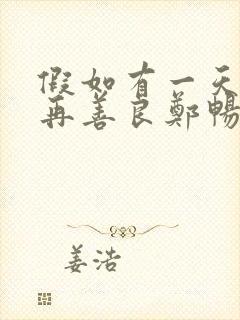 假如有一天
再善良鄭暢
姜浩